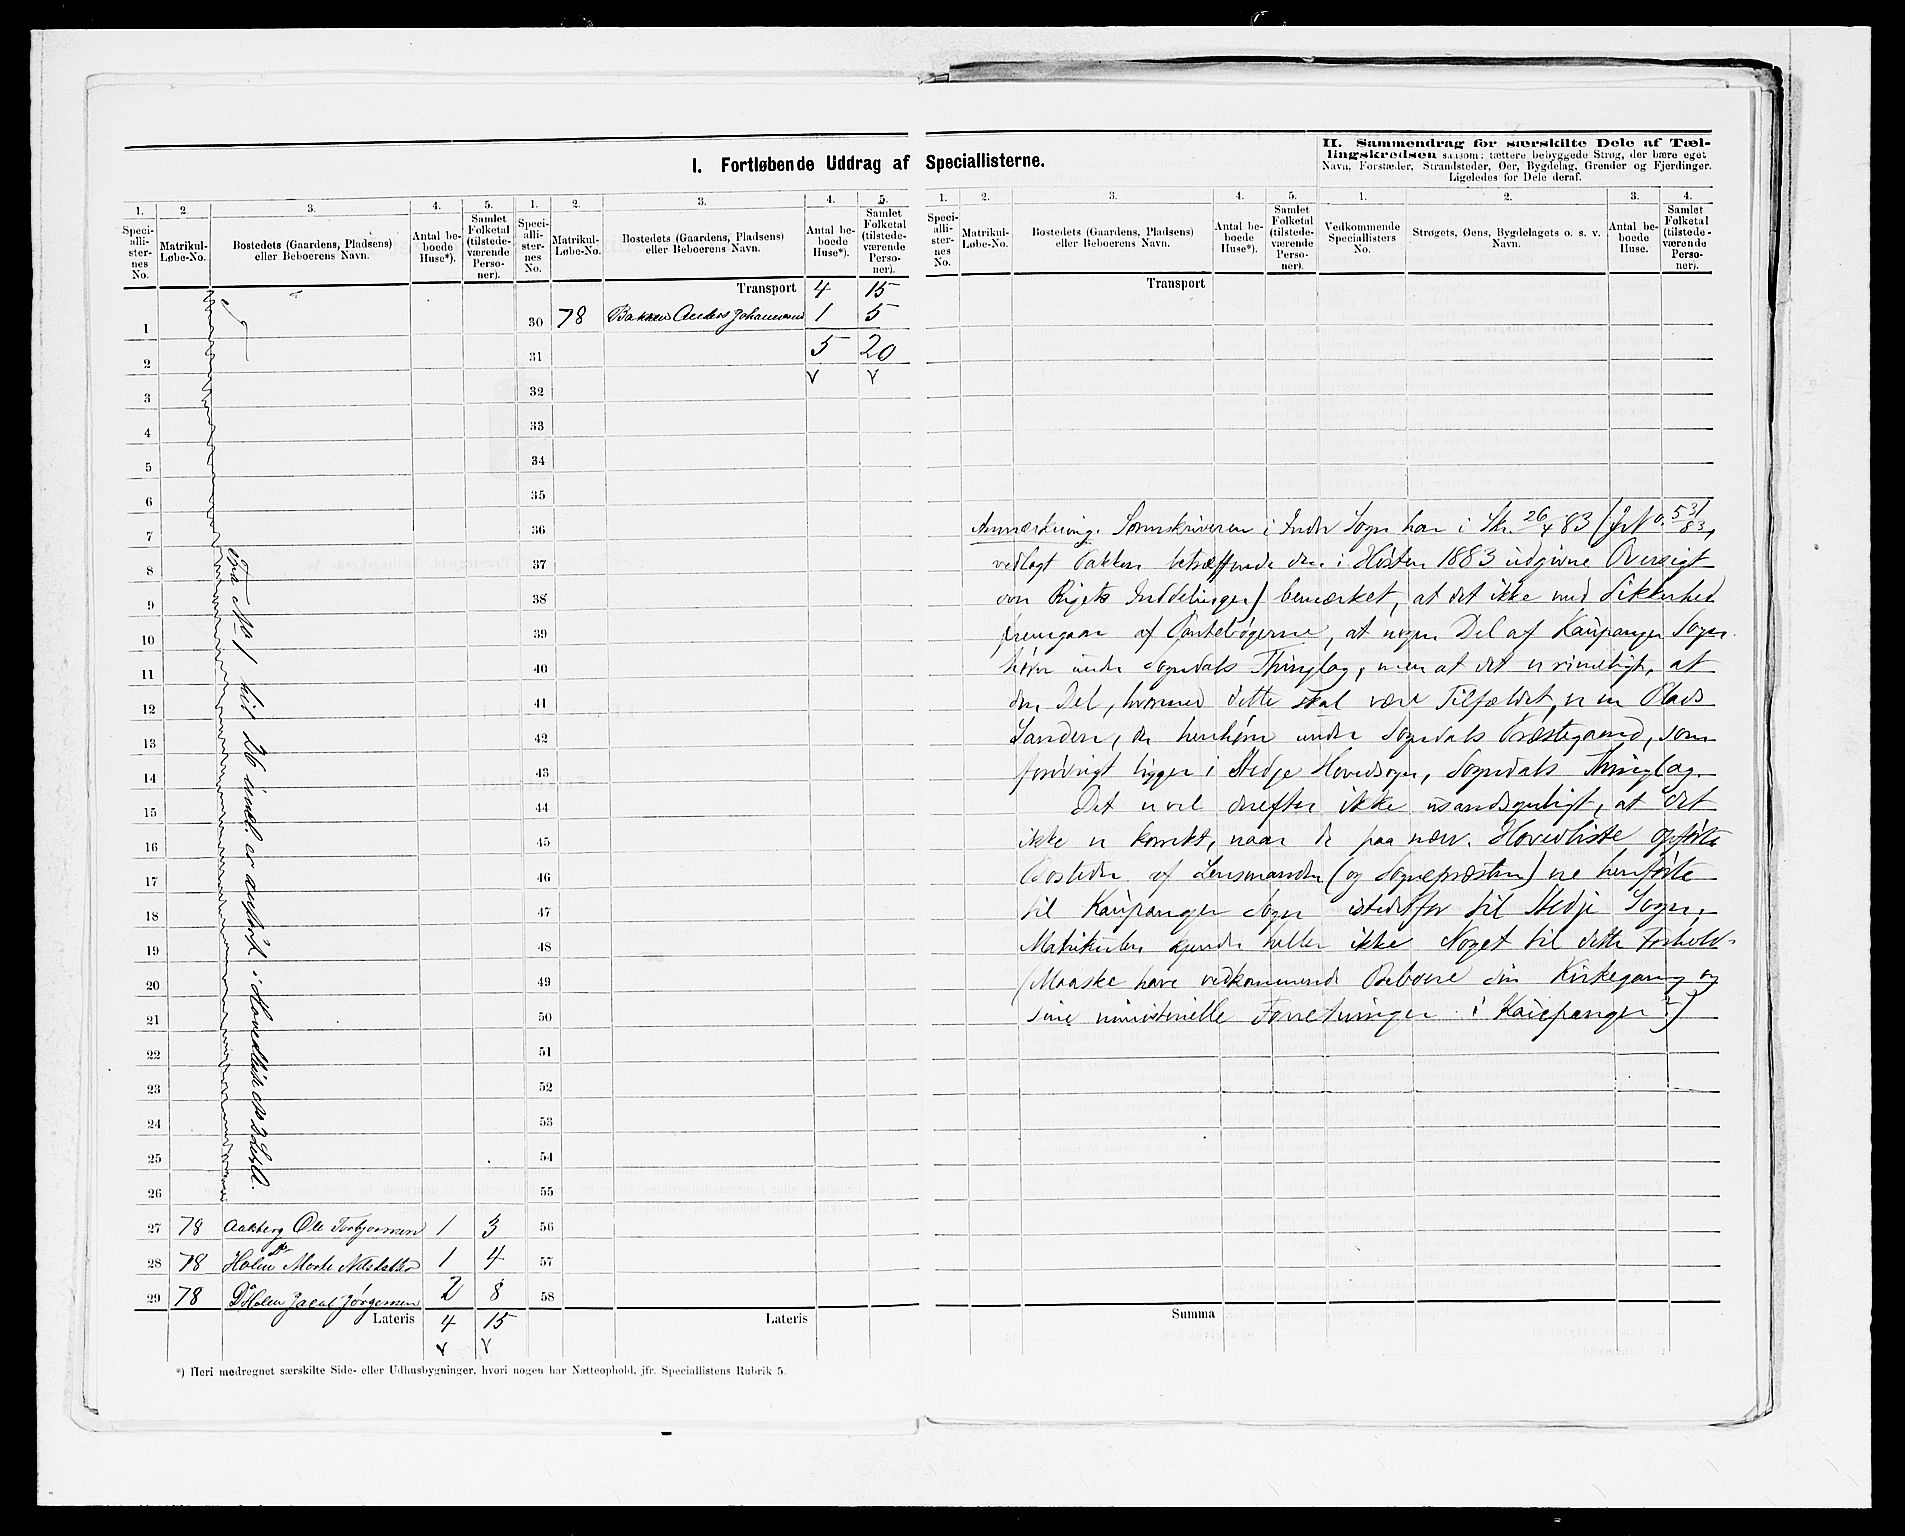 I. Fortløbende Uddrag af Speciallisterne.
II. Sammendrag for særskilte Dele af Tæl-
lingskredsen saasom: tættere bebyggede Strøg, der bære eget
Navn, Forstæder, Strandsteder, Øer, Bygdelag, Grender og Fjerdinger.
Ligeledes for Dele deraf.
1. 2. 3. 4. 5. 1. 2. 3. 4. 5. 1. 2. 3. 4. 5. 1. 2. 3. 4.
Speci-alli-ster-nes No. Matrikul-Løbe-No. Bostedets (Gaardens, Pladsens) eller Beboerens Navn. Antal be-boede Huse*). Samlet Folketal (tilstede-værende Perso-ner).
Speci-alli-ster-nes No. Matrikul-Løbe-No. Bostedets (Gaardens, Pladsens) eller Beboerens Navn. Antal be-boede Huse*). Samlet Folketal (tilstede-værende Perso-ner).
Speci-alli-ster-nes No. Matrikul-Løbe-No. Bostedets (Gaardens, Pladsens) eller Beboerens Navn. Antal be-boede Huse*). Samlet Folketal (tilstede-værende Perso-ner).
Vedkommende Speciallisters No. Strøgets, Øens, Bygdelagets o. s. v. Navn. Antal be-boede Huse. Samlet Folketal (tilstede-værende Perso-ner).
1
2
3
4
5
6
7
8
9
10
11
12
13
14
15
16
17
18
19
20
21
22
23
24
25
26
Fra No 1 til 26 incl. er anført i Hovedliste
27 78 Aaberg Ole Torbjornsen 1 3
28 78 Do Holen Marte Nilsdatter 1 4
29 78 Do Holen Jacob Jørgensen 2 8
Lateris 4 15
v v
*) Heri medregnet særskilte Side- eller Udhusbygninger, hvori nogen har Natteophold, jfr. Speciallistens Rubrik 5.
Transport 4 15
30 78 Bakken Anders Johannesen 1 5
31 5 20
32 v v
33
34
35
36
37
38
39
40
41
42
43
44
45
46
47
48
49
50
51
52
53
54
55
56
57
58
Lateris
Transport
Anmærkning. Sorenskriveren i Indre Sogn har i Sk. 26/4 83 (Jr No. 531/83,
vedlagt Pakken betræffende den i Høsten 1883 udgivne Oversigt
over Rigets Inddelinger) bemærket, at det ikke med Sikkerhed
fremgaar af Pantebøgerne, at nogen Del af Kaupanger Sogn
hører under Sogndals Thinglag, men at det er rimeligt, at
den Del, hvormed dette skal være Tilfældet, er en Plads
Sanden, der henhører under Sogndals Præstegaard, som
forøvrigt ligger i Stedje Hovedsogn, Sogndals Thinglag.
Det er vel derefter ikke usandsynligt, at det
ikke er korrekt, naar de paa nærv. Hovedliste opførte
Bosteder af Lensmanden (og Sognepræsten) ere henførte
til Kaupanger Sogn istedetfor til Stedje Sogn.
Matrikulen kjender heller ikke Noget til dette Forhold.
(Maaske have vedkommende Beboere sin Kirkegang og
sine ministerielle Forretninger i Kaupanger?)
Summa